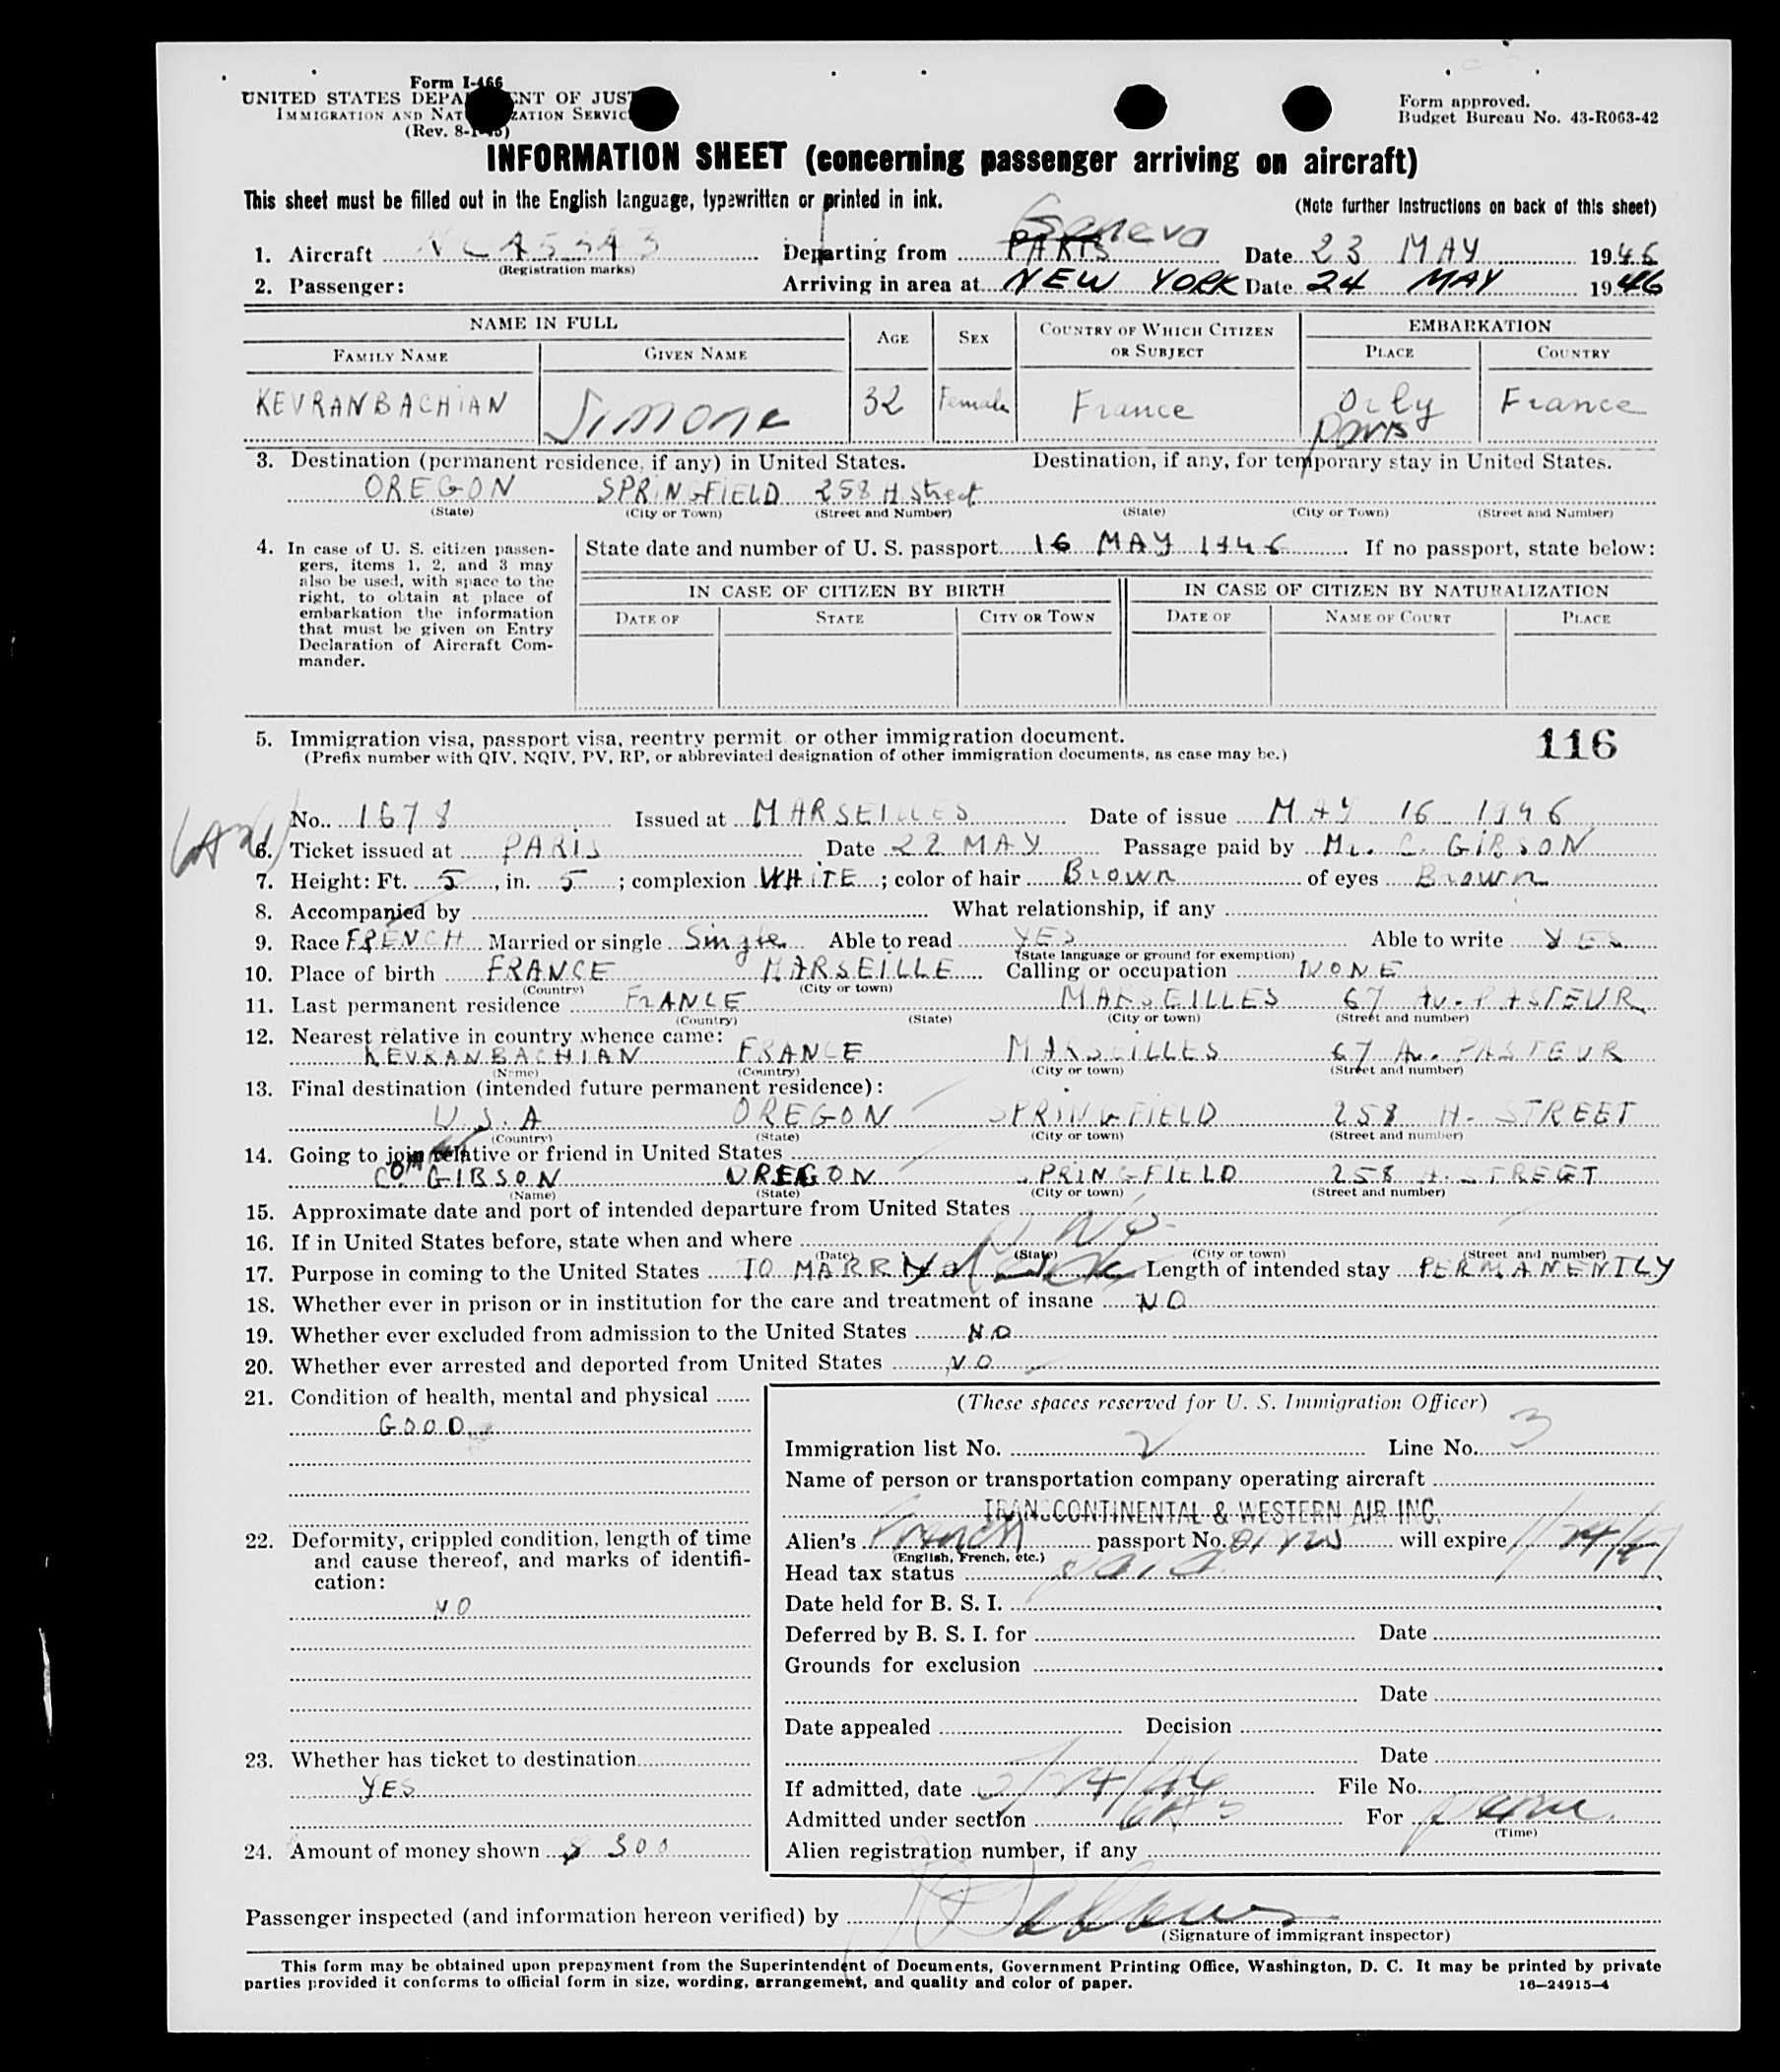 Form I-466
UNITED STATES DEPA ENT OF JUST
IMMIGRATION AND NAT ZATION SERVIC
(Rev. 8-1-45)
Form approved.
Budget Bureau No. 43-R063-42
INFORMATION SHEET (concerning passenger arriving on aircraft)
This sheet must be filled out in the English language, typewritten or printed in ink.
(Note further instructions on back of this sheet)
Geneva
1. Aircraft NC 45343 Departing from PARIS Date 23 MAY 1946
(Registration marks)
2. Passenger: Arriving in area at NEW YORK Date 24 MAY 1946
NAME IN FULL AGE SEX COUNTRY OF WHICH CITIZEN OR SUBJECT EMBARKATION
FAMILY NAME GIVEN NAME PLACE COUNTRY
KEVRANBACHIAN Simone 32 Female France Orly France
Paris
3. Destination (permanent residence, if any) in United States. Destination, if any, for temporary stay in United States.
OREGON SPRINGFIELD 258 H Street
(State) (City or Town) (Street and Number) (State) (City or Town) (Street and Number)
4. In case of U. S. citizen passen-
gers, items 1, 2, and 3 may
also be used, with space to the
right, to obtain at place of
embarkation the information
that must be given on Entry
Declaration of Aircraft Com-
mander.
State date and number of U. S. passport 16 MAY 1946 If no passport, state below:
IN CASE OF CITIZEN BY BIRTH IN CASE OF CITIZEN BY NATURALIZATION
DATE OF STATE CITY OR TOWN DATE OF NAME OF COURT PLACE
5. Immigration visa, passport visa, reentry permit or other immigration document.
(Prefix number with QIV, NQIV, PV, RP, or abbreviated designation of other immigration documents, as case may be.)
116
No. 1678 Issued at MARSEILLES Date of issue MAY 16 1946
6. Ticket issued at PARIS Date 22 MAY Passage paid by Mr. C. GIBSON
7. Height: Ft. 5, in. 5; complexion WHITE; color of hair Brown of eyes Brown
8. Accompanied by What relationship, if any
9. Race FRENCH Married or single Single Able to read YES Able to write YES
(State language or ground for exemption)
10. Place of birth FRANCE MARSEILLE Calling or occupation NONE
(Country) (City or town)
11. Last permanent residence FRANCE MARSEILLES 67 Av. PASTEUR
(Country) (State) (City or town) (Street and number)
12. Nearest relative in country whence came:
KEVRANBACHIAN FRANCE MARSEILLES 67 Av. PASTEUR
(Name) (Country) (City or town) (Street and number)
13. Final destination (intended future permanent residence):
U.S.A OREGON SPRINGFIELD 258 H. STREET
(Country) (State) (City or town) (Street and number)
14. Going to join relative or friend in United States
GIBSON OREGON SPRINGFIELD 258 H. STREET
(Name) (State) (City or town) (Street and number)
15. Approximate date and port of intended departure from United States
16. If in United States before, state when and where No
(Date) (State) (City or town) (Street and number)
17. Purpose in coming to the United States TO MARRY Length of intended stay PERMANENTLY
18. Whether ever in prison or in institution for the care and treatment of insane NO
19. Whether ever excluded from admission to the United States NO
20. Whether ever arrested and deported from United States NO
21. Condition of health, mental and physical
GOOD
22. Deformity, crippled condition, length of time
and cause thereof, and marks of identifi-
cation:
NO
23. Whether has ticket to destination
YES
24. Amount of money shown $ 300
(These spaces reserved for U. S. Immigration Officer)
Immigration list No. 2 Line No. 3
Name of person or transportation company operating aircraft
TRANSCONTINENTAL & WESTERN AIR INC.
Alien's French passport No. will expire
(English, French, etc.)
Head tax status paid
Date held for B. S. I.
Deferred by B. S. I. for Date
Grounds for exclusion
Date
Date appealed Decision
Date
If admitted, date 5/24/46 File No.
Admitted under section 6A3 For perm.
(Time)
Alien registration number, if any
Passenger inspected (and information hereon verified) by
(Signature of immigrant inspector)
This form may be obtained upon prepayment from the Superintendent of Documents, Government Printing Office, Washington, D. C. It may be printed by private
parties provided it conforms to official form in size, wording, arrangement, and quality and color of paper. 16—24915-4